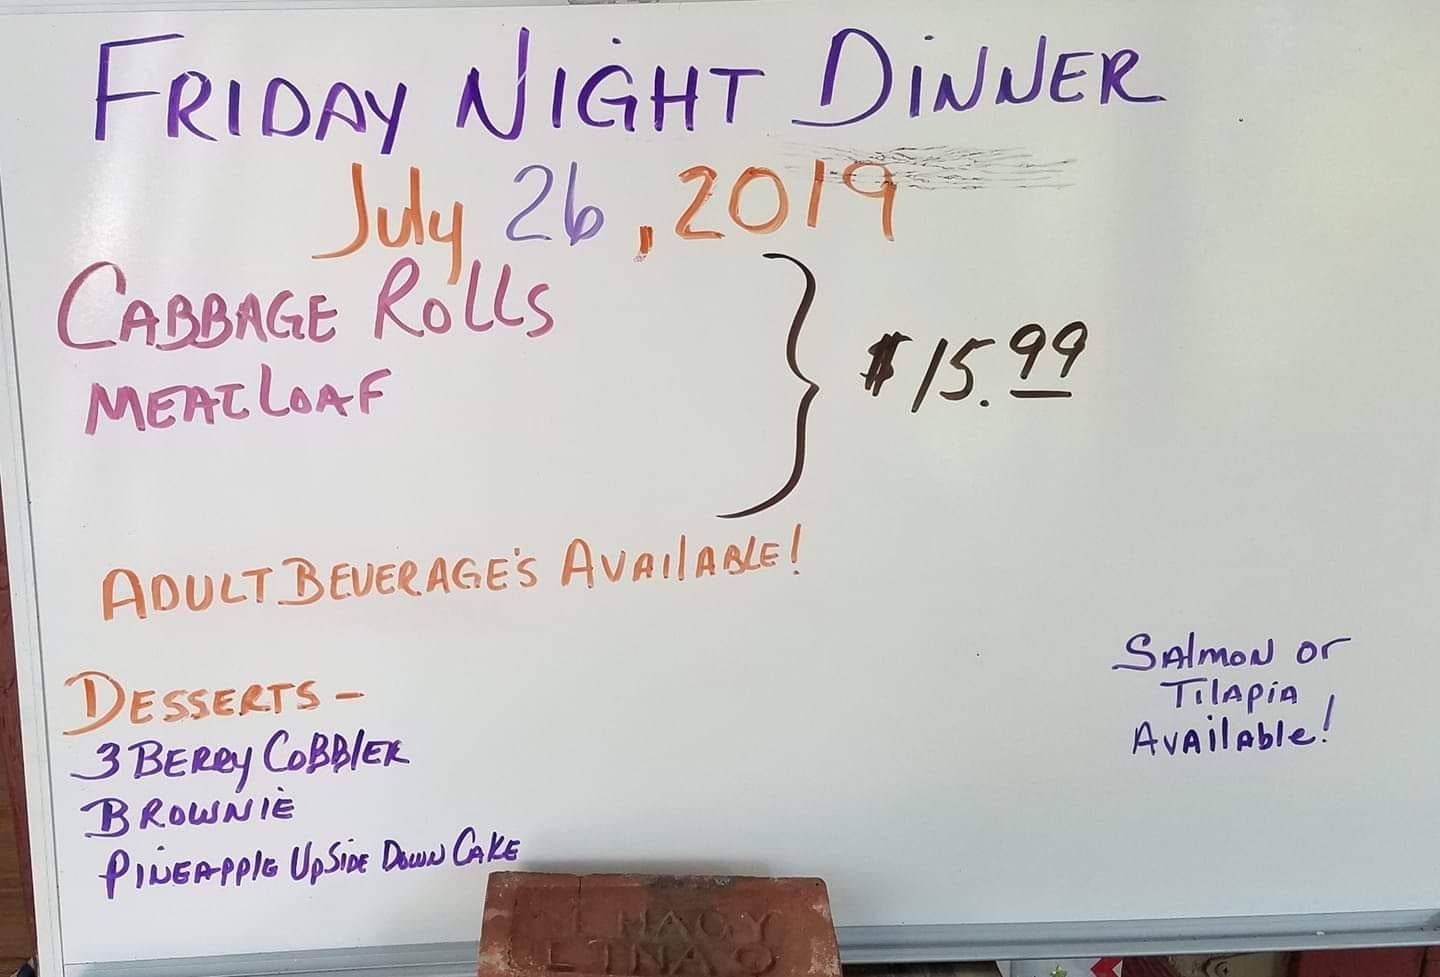 FRIDAY NIGHT DINNER
July 26, 2019
CABBAGE ROLLS
MEATLOAF
$15.99
ADULT BEVERAGE'S AVAILABLE!
DESSERTS -
3 BERRY COBBLER
BROWNIE
PINEAPPLE UPSIDE DOWN CAKE
SALMON or
TILAPIA
AVAILABLE!